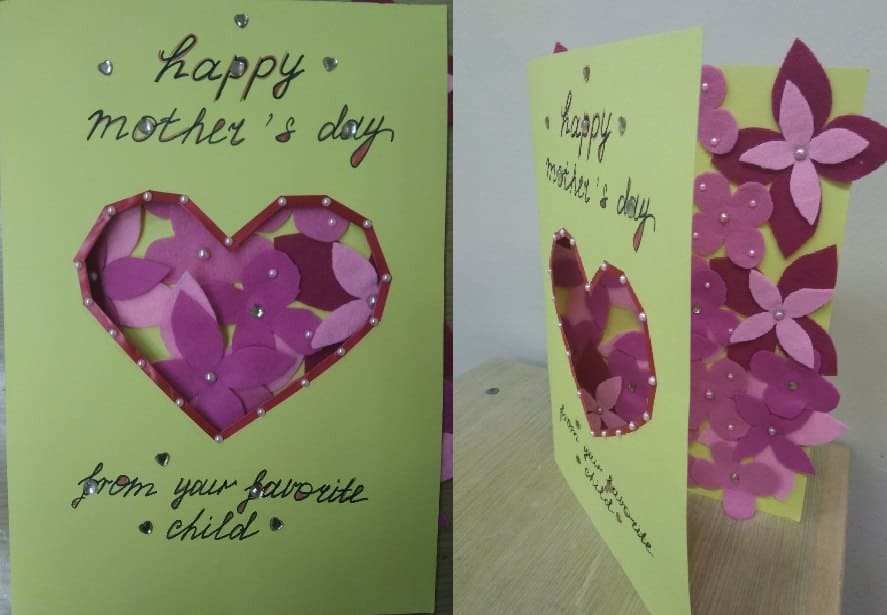 happy
mother's day
from your favorite
child
happy
mother's day
from your favorite
child